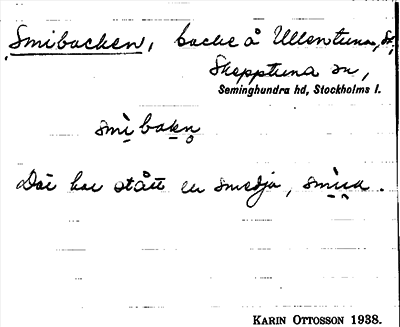 Smibacken, backe å Ullentuna,
Skepptuna sn,
Seminghundra hd, Stockholms l.
smi̱bakn̥
Där har stått en smedja,
KARIN OTTOSSON 1938.